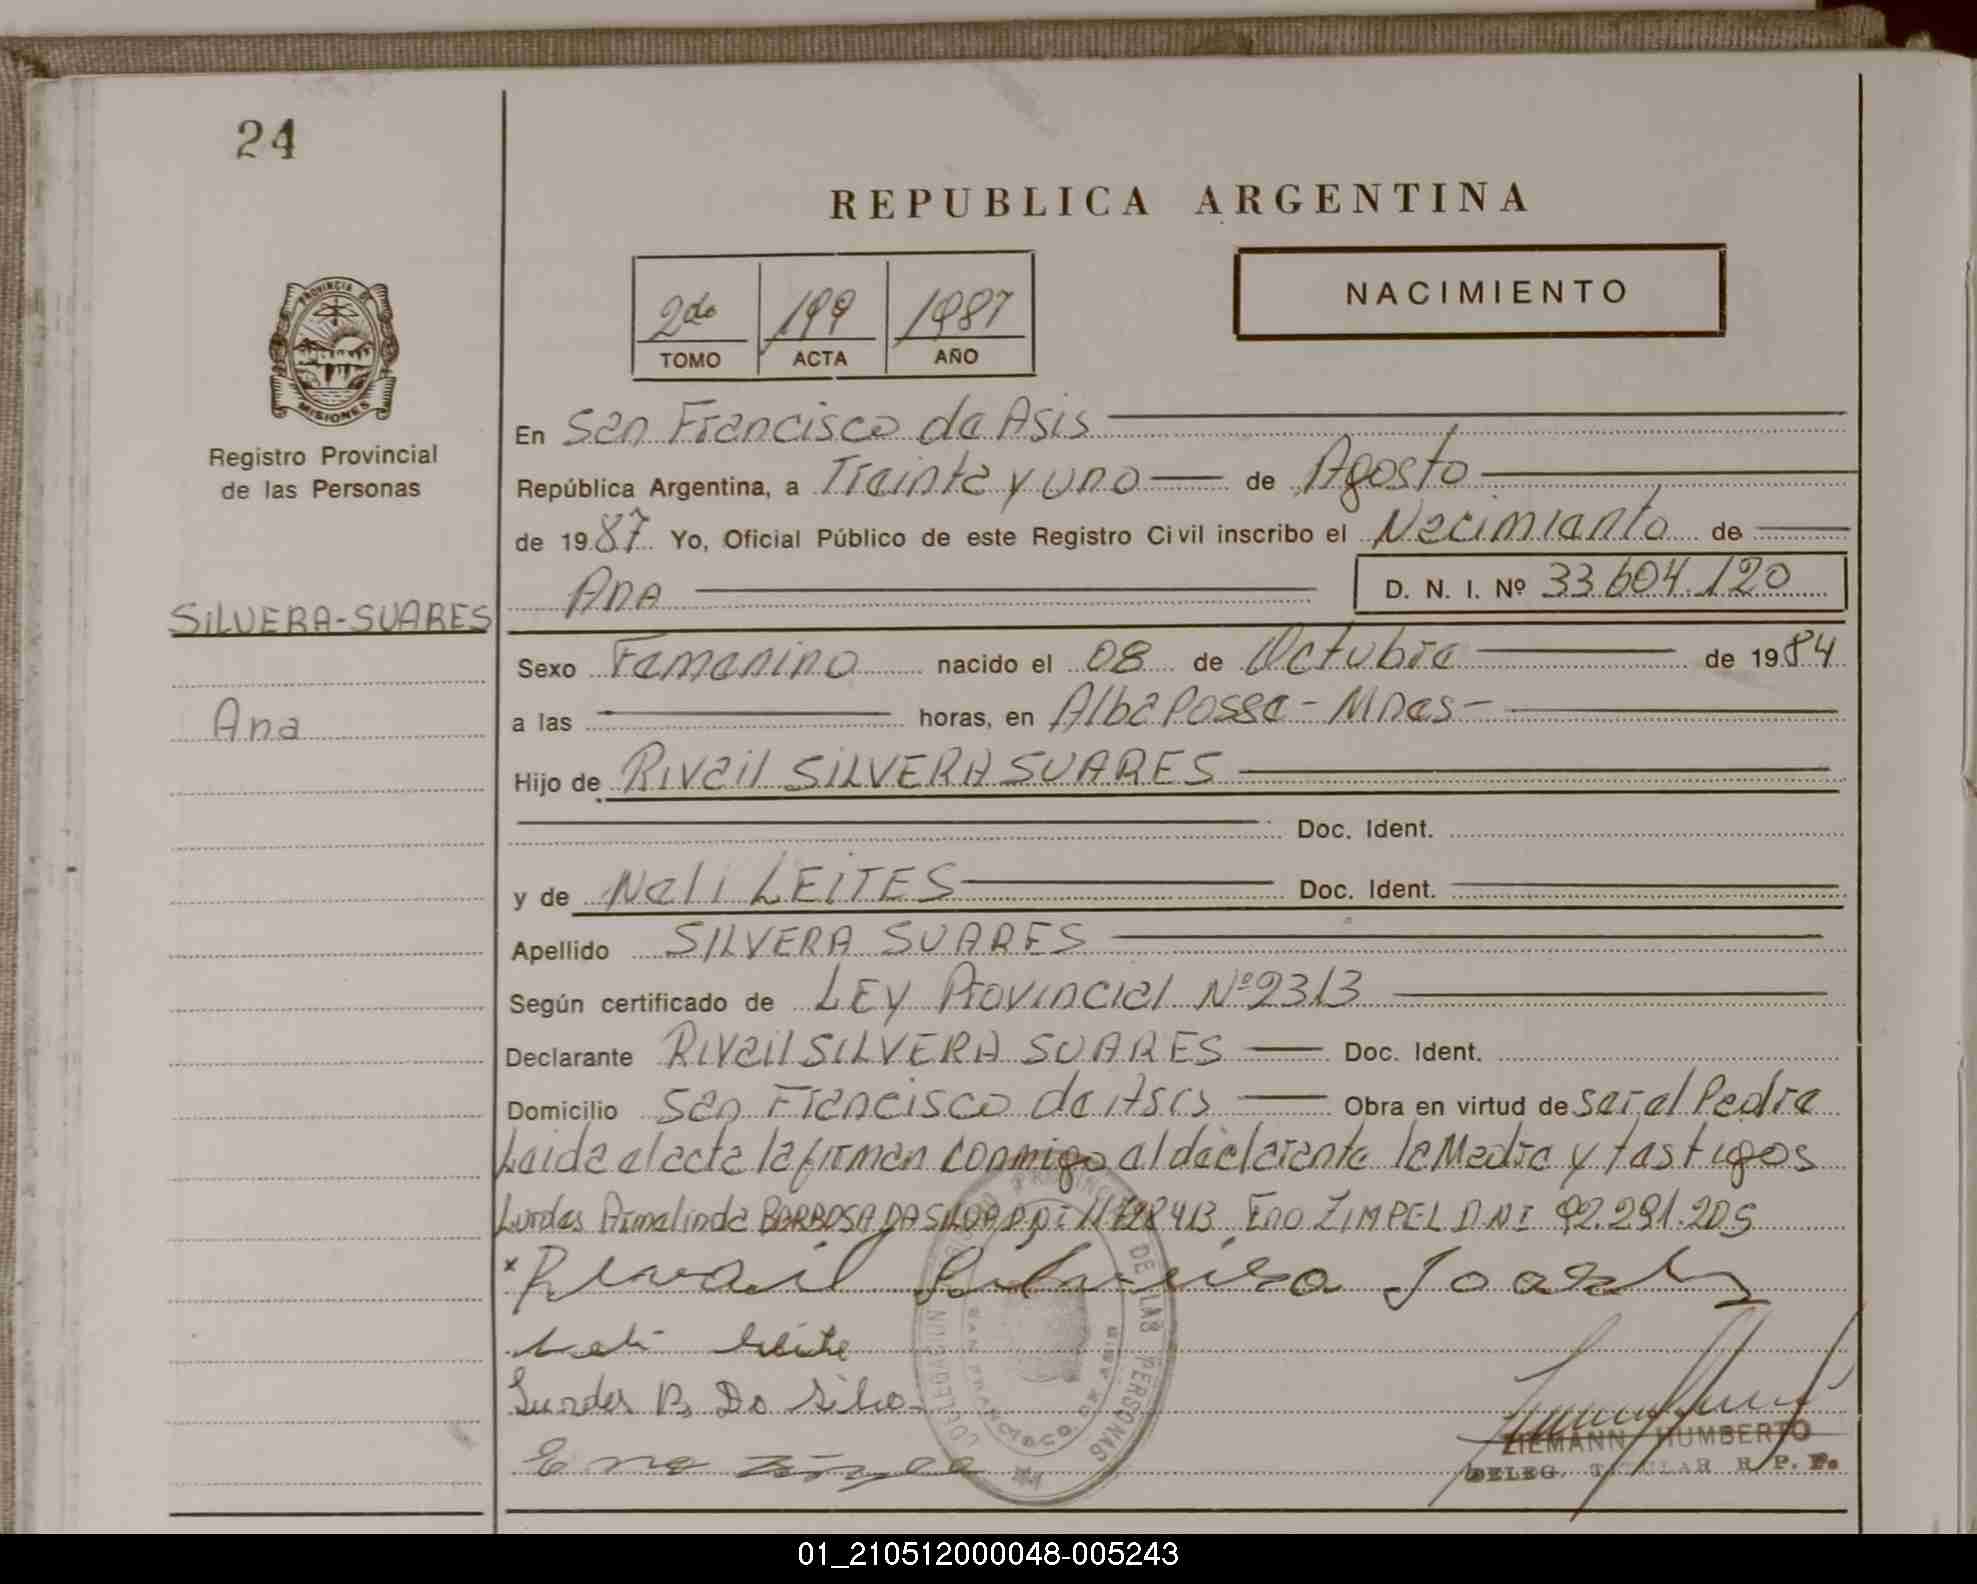 24
REPUBLICA ARGENTINA
2do 199 1987
TOMO ACTA AÑO
NACIMIENTO
PROVINCIA DE
MISIONES
Registro Provincial
de las Personas
En San Francisco de Asis
República Argentina, a Treinta y uno de Agosto
de 1987 Yo, Oficial Público de este Registro Civil inscribo el Nacimiento de
Ana D. N. I. Nº 33.604.120
SILVERA-SUARES
Ana
Sexo Femenino nacido el 08 de Octubre de 1984
a las horas, en Alba Posse - Mnes -
Hijo de Rivail SILVERA SUARES
Doc. Ident.
y de Neli LEITES Doc. Ident.
Apellido SILVERA SUARES
Según certificado de LEY Provincial Nº 2313
Declarante Rivail SILVERA SUARES Doc. Ident.
Domicilio San Francisco de Asis Obra en virtud de ser el Padre
Leida el acta la firman conmigo el declarante la Madre y testigos
Lurdes Armelinda BARBOSA DA SILVA DNI 11728413 Eno ZIMPEL DNI 92.291.205
Neli Leite
Lurdes B. Da Silva
DELEGACION REGISTRO PROVINCIAL DE LAS PERSONAS
SAN FRANCISCO DE ASIS
ZIEMANN HUMBERTO
DELEG. TITULAR R. P. P.
01_210512000048-005243